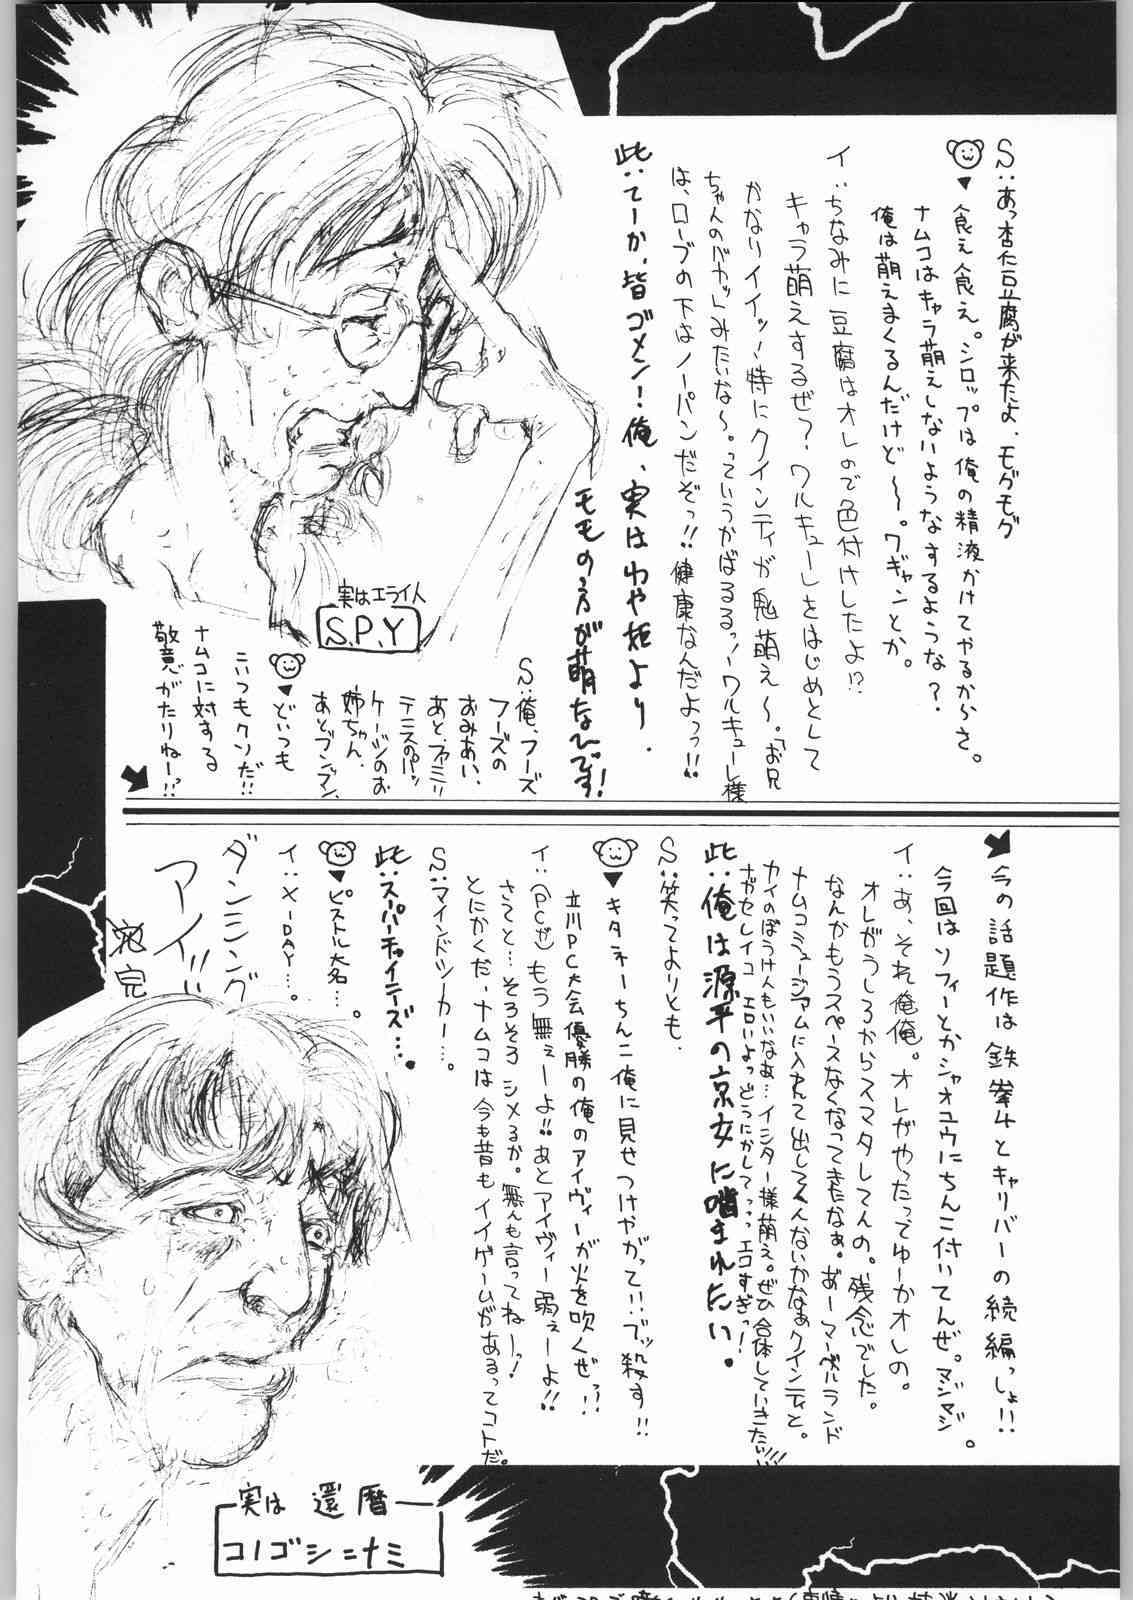 S：あっ杏仁豆腐が来たよ、モグモグ
▼食え食え。シロップは俺の精液かけてやるからさ。
ナムコはキャラ萌えしないようなするような？
俺は萌えまくるんだけど～。ワギャンとか。
イ：ちなみに豆腐はオレので色付けしたよ!?
キャラ萌えするぜ？ワルキューレをはじめとして
かなりイイッ！特にクインティが鬼萌え～。「お兄
ちゃんのバカッ」みたいな～。っていうかばるるっ！ワルキューレ様
は、ローブの下はノーパンだぞっ!!健康なんだよっっ!!
此：てーか、皆ゴメン！俺、実はわや姫より、
モモの方が萌なんです！
S：俺、フーズ
フーズの
おみあい、
あと、ファミリー
テニスのパッ
ケージのお
姉ちゃん、
あとブンブン、
▼どいつも
こいつもクソだ!!
ナムコに対する
敬意がたりねーっ!!
実はエライ人
S.P.Y
今の話題作は鉄拳4とキャリバーの続編っしょ!!
今回はソフィーとかシャオユウにちんこ付いてんぜ。マジマジ。
イ：あ、それ俺俺。オレがやったってゆーかオレの。
オレがうしろからスマタしてんの。残念でした。
なんかもうスペースなくなってきたなぁ。あーマーベルランド
ナムコミュージアムに入れて出してくんないかなぁクインティと。
カイのぼうけんもいいなぁ…イシター様萌え。ぜひ合体していきたい!!!
ナガセレイコ エロいよっどうにかしてってっ エロすぎっ！
此：俺は源平の京女に噛まれたい。
S：笑ってよりとも、
▼キタネーちんこ俺に見せつけやがって!!ブッ殺す!!
立川PC大会優勝の俺のアイヴィーが火を吹くぜっ!!
イ：(PCが)もう無ぇーよ!!あとアイヴィー弱ぇーよ!!
さてと…そろそろシメるか。無んも言ってねーっ！
とにかくだ、ナムコは今も昔もイイゲームがあるってコトだ。
S：マインドシーカー…。
此：スーパーチャイニーズ…。
▼ピストル大名…。
イ：X-DAY…。
ダンシング
アイ!!
完
実は 還暦
コノゴシニナミ